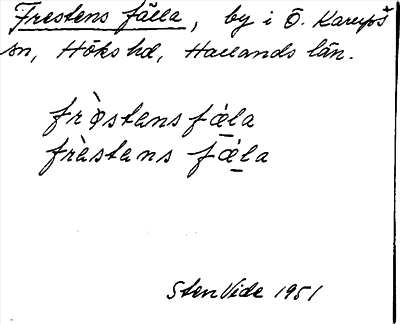 Frestens fälla, by i Ö. Karups
sn, Höks hd, Hallands län.
frø̀stens fǽla
fræ̀stens fǽla
Sten Vide 1951